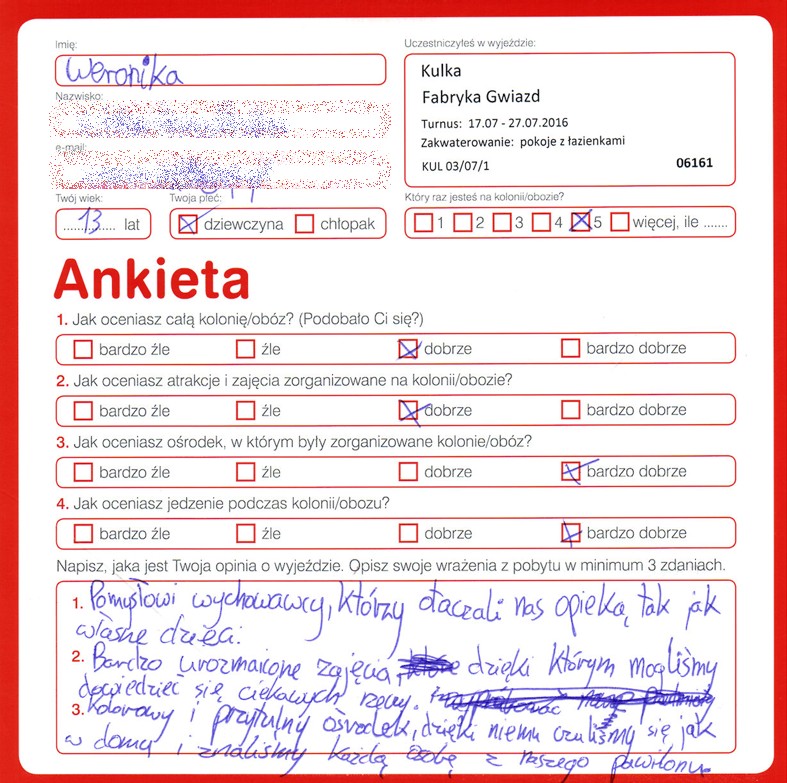 Imię:
Weronika
Nazwisko:
e-mail:
Twój wiek:
Twoja płeć:
......13...... lat
dziewczyna chłopak
Uczestniczyłeś w wyjeździe:
Kulka
Fabryka Gwiazd
Turnus: 17.07 - 27.07.2016
Zakwaterowanie: pokoje z łazienkami
KUL 03/07/1 06161
Który raz jesteś na kolonii/obozie?
1 2 3 4 5 więcej, ile .......
Ankieta
1. Jak oceniasz całą kolonię/obóz? (Podobało Ci się?)
bardzo źle źle dobrze bardzo dobrze
2. Jak oceniasz atrakcje i zajęcia zorganizowane na kolonii/obozie?
bardzo źle źle dobrze bardzo dobrze
3. Jak oceniasz ośrodek, w którym były zorganizowane kolonie/obóz?
bardzo źle źle dobrze bardzo dobrze
4. Jak oceniasz jedzenie podczas kolonii/obozu?
bardzo źle źle dobrze bardzo dobrze
Napisz, jaka jest Twoja opinia o wyjeździe. Opisz swoje wrażenia z pobytu w minimum 3 zdaniach.
1. Pomysłowi wychowawcy, którzy otaczali nas opieką, tak jak
własne dzieci.
2. Bardzo urozmaicone zajęcia, dzięki którym mogliśmy
dowiedzieć się ciekawych rzeczy.
3. Kolorowy i przytulny ośrodek, dzięki niemu czuliśmy się jak
w domu i znaliśmy każdą osobę z naszego pawilonu.